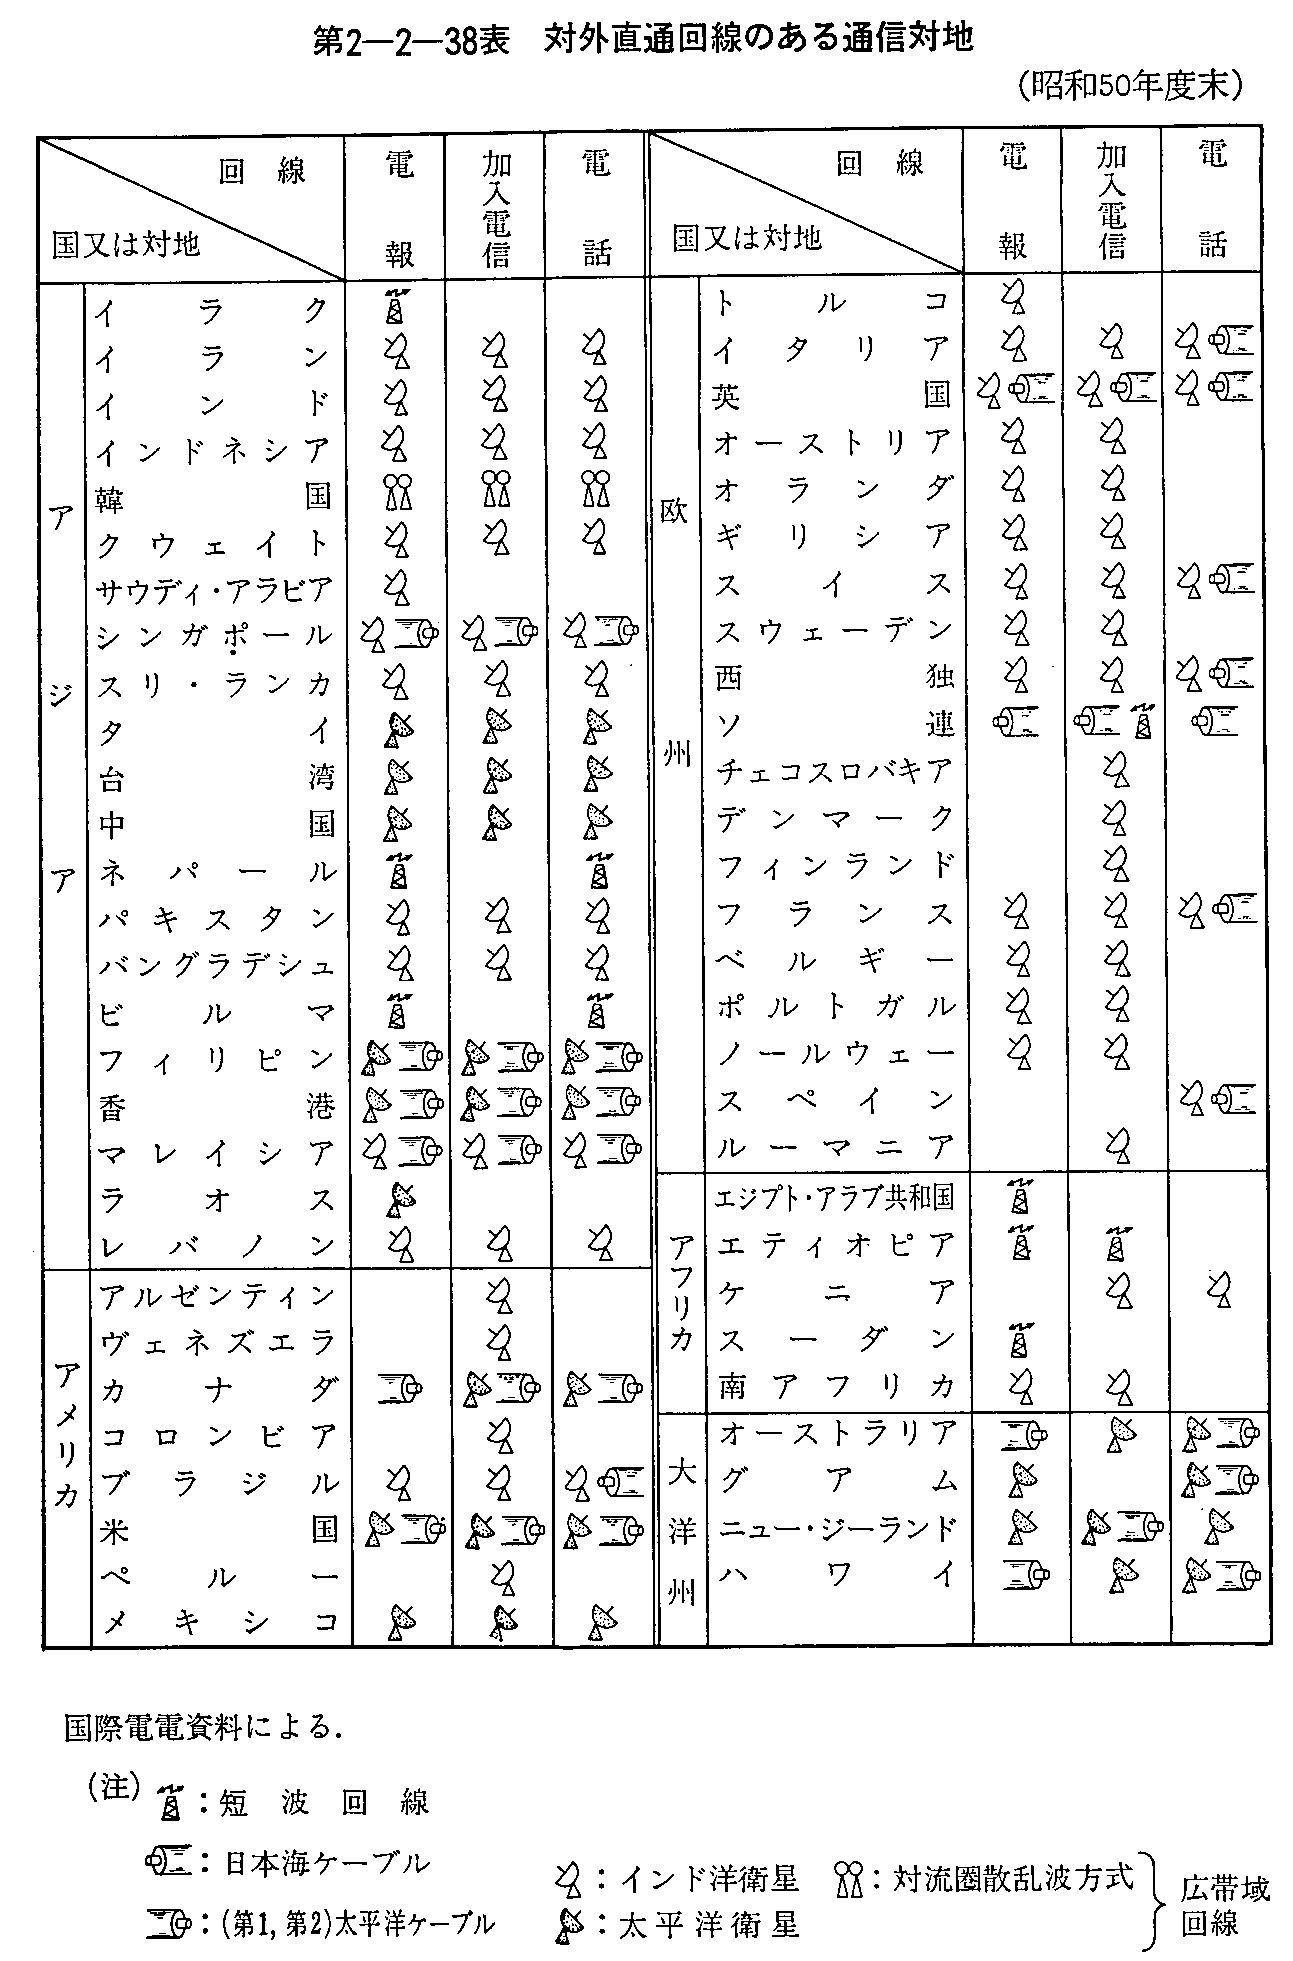 第2—2—38表　対外直通回線のある通信対地
(昭和50年度末)
回線　電報　加入電信　電話
国又は対地
アジア
イラク
イラン
インド
インドネシア
韓国
クウェイト
サウディ・アラビア
シンガポール
スリ・ランカ
タイ
台湾
中国
ネパール
パキスタン
バングラデシュ
ビルマ
フィリピン
香港
マレイシア
ラオス
レバノン
アメリカ
アルゼンティン
ヴェネズエラ
カナダ
コロンビア
ブラジル
米国
ペルー
メキシコ
回線　電報　加入電信　電話
国又は対地
欧州
トルコ
イタリア
英国
オーストリア
オランダ
ギリシア
スイス
スウェーデン
西独
ソ連
チェコスロバキア
デンマーク
フィンランド
フランス
ベルギー
ポルトガル
ノールウェー
スペイン
ルーマニア
アフリカ
エジプト・アラブ共和国
エティオピア
ケニア
スーダン
南アフリカ
大洋州
オーストラリア
グアム
ニュー・ジーランド
ハワイ
国際電電資料による.
(注)：短波回線
：日本海ケーブル
：(第1, 第2)太平洋ケーブル
：インド洋衛星　：対流圏散乱波方式
：太平洋衛星
広帯域
回線